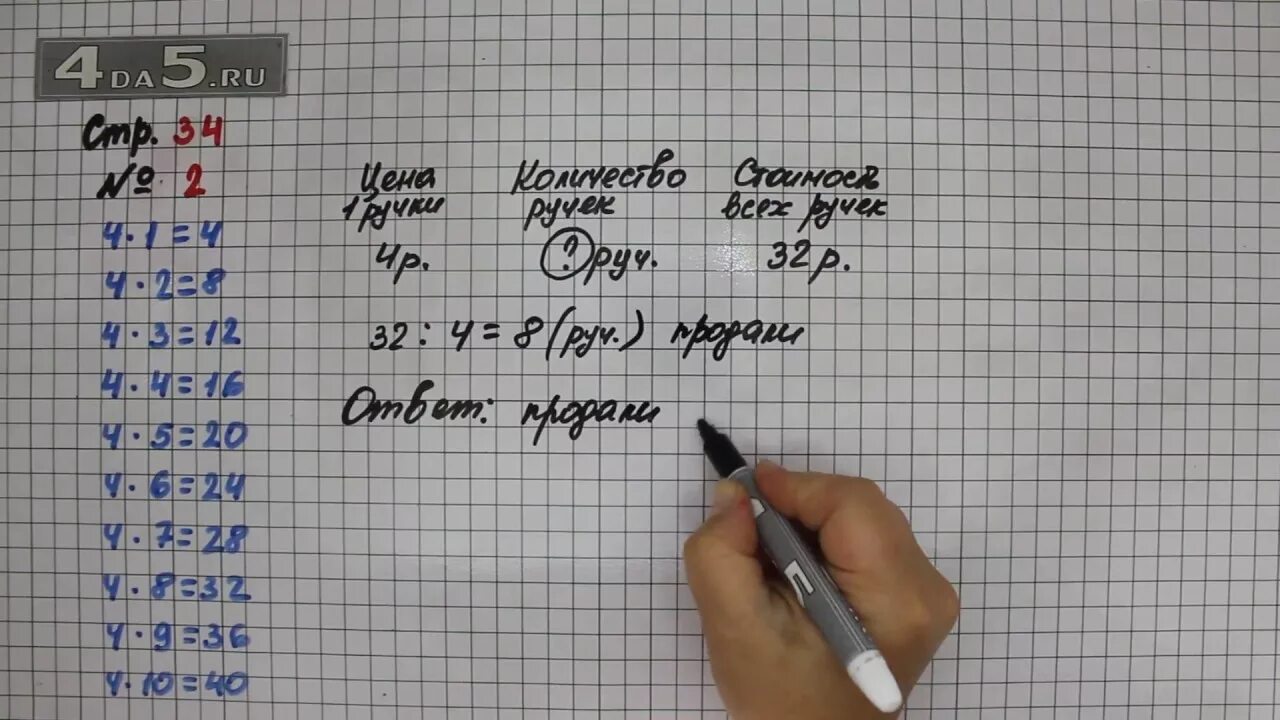 4DA5.RU
Стр. 34
№ 2
4 · 1 = 4
4 · 2 = 8
4 · 3 = 12
4 · 4 = 16
4 · 5 = 20
4 · 6 = 24
4 · 7 = 28
4 · 8 = 32
4 · 9 = 36
4 · 10 = 40
Цена Количество Стоимость
1 ручки ручек всех ручек
4р. ? руч. 32 р.
32 : 4 = 8 (руч.) продали
Ответ: продали